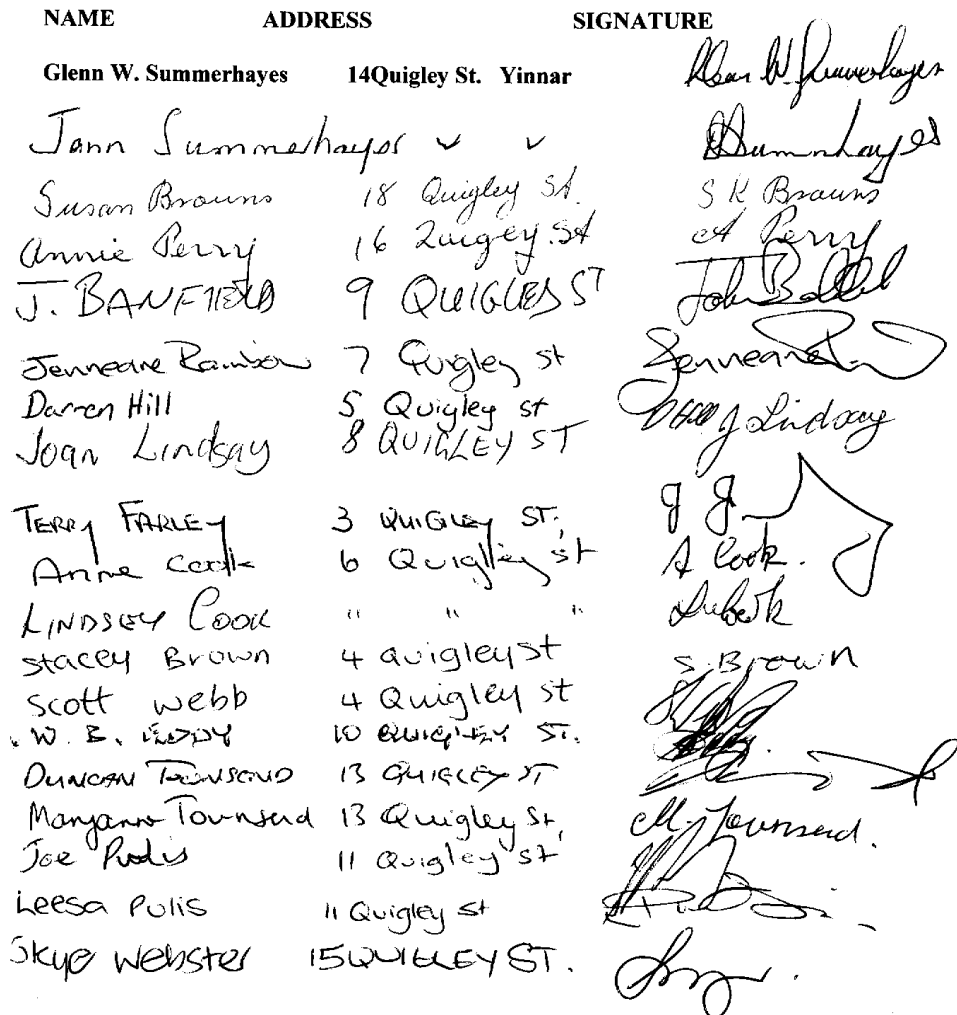 NAME ADDRESS SIGNATURE
Glenn W. Summerhayes 14Quigley St. Yinnar Glenn W. Summerhayes
Jann Summerhayes " " Summerhayes
Susan Browns 18 Quigley St. S K Browns
Annie Perry 16 Quigey. St A Perry
J. BANFIELD 9 QUIGLES ST John
Jenneane Rainbow 7 Quigley st Jenneane
Darren Hill 5 Quigley st
Joan Lindsay 8 QUIGLEY ST J Lindsay
TERRY FARLEY 3 QUIGLEY ST,
Anne Cook 6 Quiglley st A Cook.
LINDSEY COOK " " "
Stacey Brown 4 Quigley st S. Brown
Scott Webb 4 Quigley st
W. B. EDDY 10 QUIGLEY ST.
DUNCAN TOWNSEND 13 QUIGLEY ST
Maryanne Townsend 13 Quigley St, M. Townsend.
Joe Pulis 11 Quigley st
Leesa Pulis 11 Quigley st
Skye Webster 15 QUIGLEY ST.